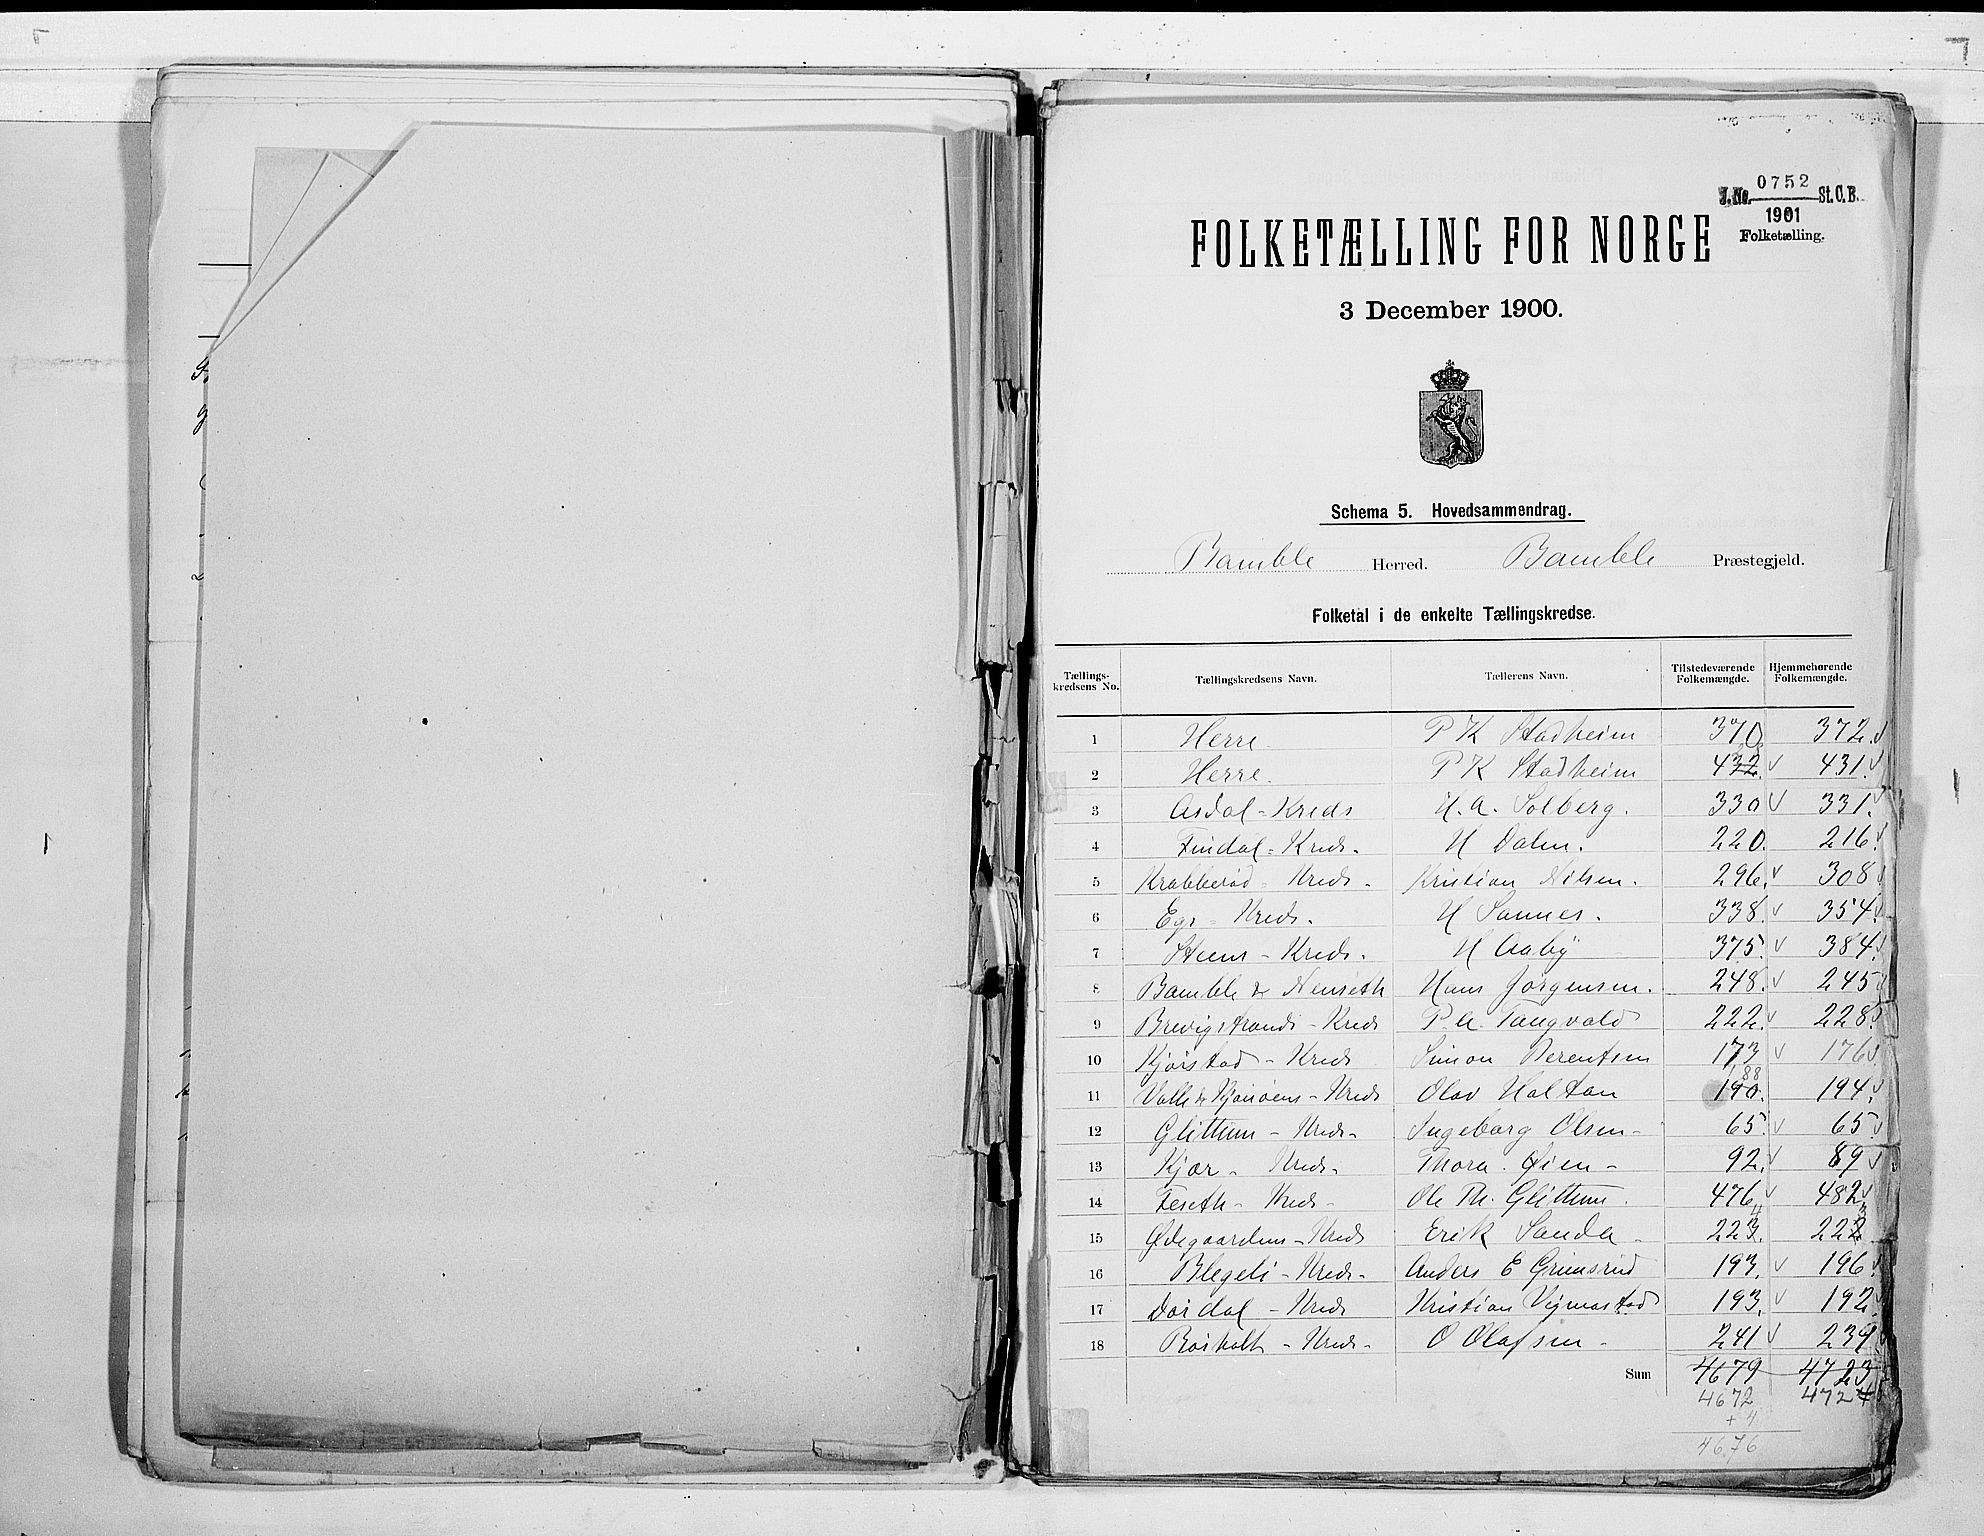 J.No. 0752 St.C.B.
1901
Folketælling.
FOLKETÆLLING FOR NORGE
3 December 1900.
Schema 5. Hovedsammendrag.
Bamble Herred. Bamble Præstegjeld.
Folketal i de enkelte Tællingskredse.
Tællings-kredsens No. Tællingskredsens Navn. Tællerens Navn. Tilstedeværende Folkemængde. Hjemmehørende Folkemængde.
1 Herre. P K Stadheim 370 372.
2 Herre. P K Stadheim 432. 431.
3 Asdal-Kreds H. A. Solberg. 330 331.
4 Findal-Kreds. H Dalen. 220. 216.
5 Krabberød-Kreds. Kristian Nilsen. 296. 308
6 Eger-Kreds. H Sannes. 338. 354.
7 Steens-Kreds. H Aaby 375. 384.
8 Bamble & Nenseth Hans Jørgensen. 248. 245
9 Brevigstrands-Kreds P. A. Tangvald 222. 228.
10 Kjørstad-Kreds Simon Berentsen 173 176.
188
11 Valle & -Kreds Olav Haltan 190. 194.
12 Glittum-Kreds- Ingeborg Olsen- 65. 65.
13 Kjær-Kreds- Thora Øien- 92. 89
14 Feseth-Kreds- Ole Th. Glittum. 476. 482.
15 Ødegaardens-Kreds Erik Sanda- 223. 222
16 Blegeli-Kreds- Anders E Grimsrud 193. 196.
17 Dørdal-Kreds Kristian Vinjestad 193. 192.
18 Rørholt-Kreds- O Olafsen- 241 239
Sum 4679 4723
4672 4724
+ 4
4676